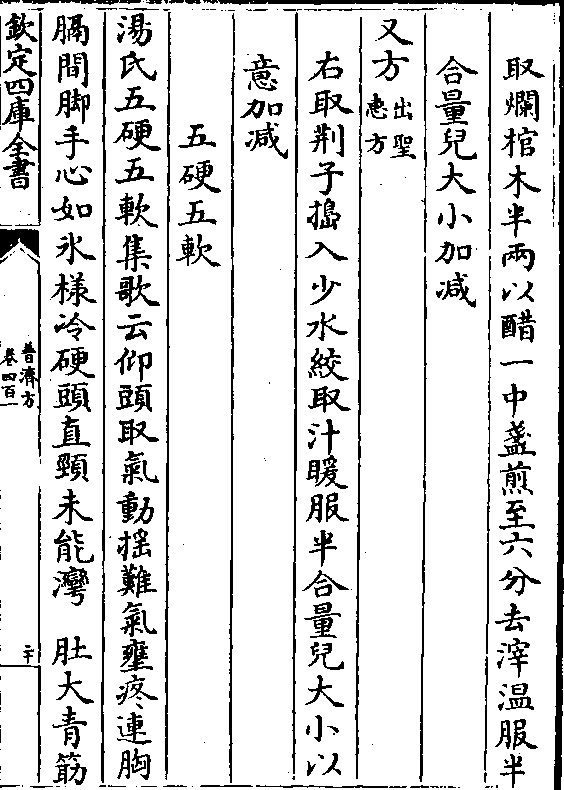 取爛棺木半兩以醋一中盞煎至六分去滓温服半
合量兒大小加减
又方出聖惠方
右取荆子搗入少水絞取汁暖服半合量兒大小以
意加减
五硬五軟
湯氏五硬五軟集歌云仰頭取氣動揺難氣壅疼連胸
膈間脚手心如氷様冷硬頭直頸未能灣　肚大青筋
欽定四庫全書
普濟方
卷四百一
二十